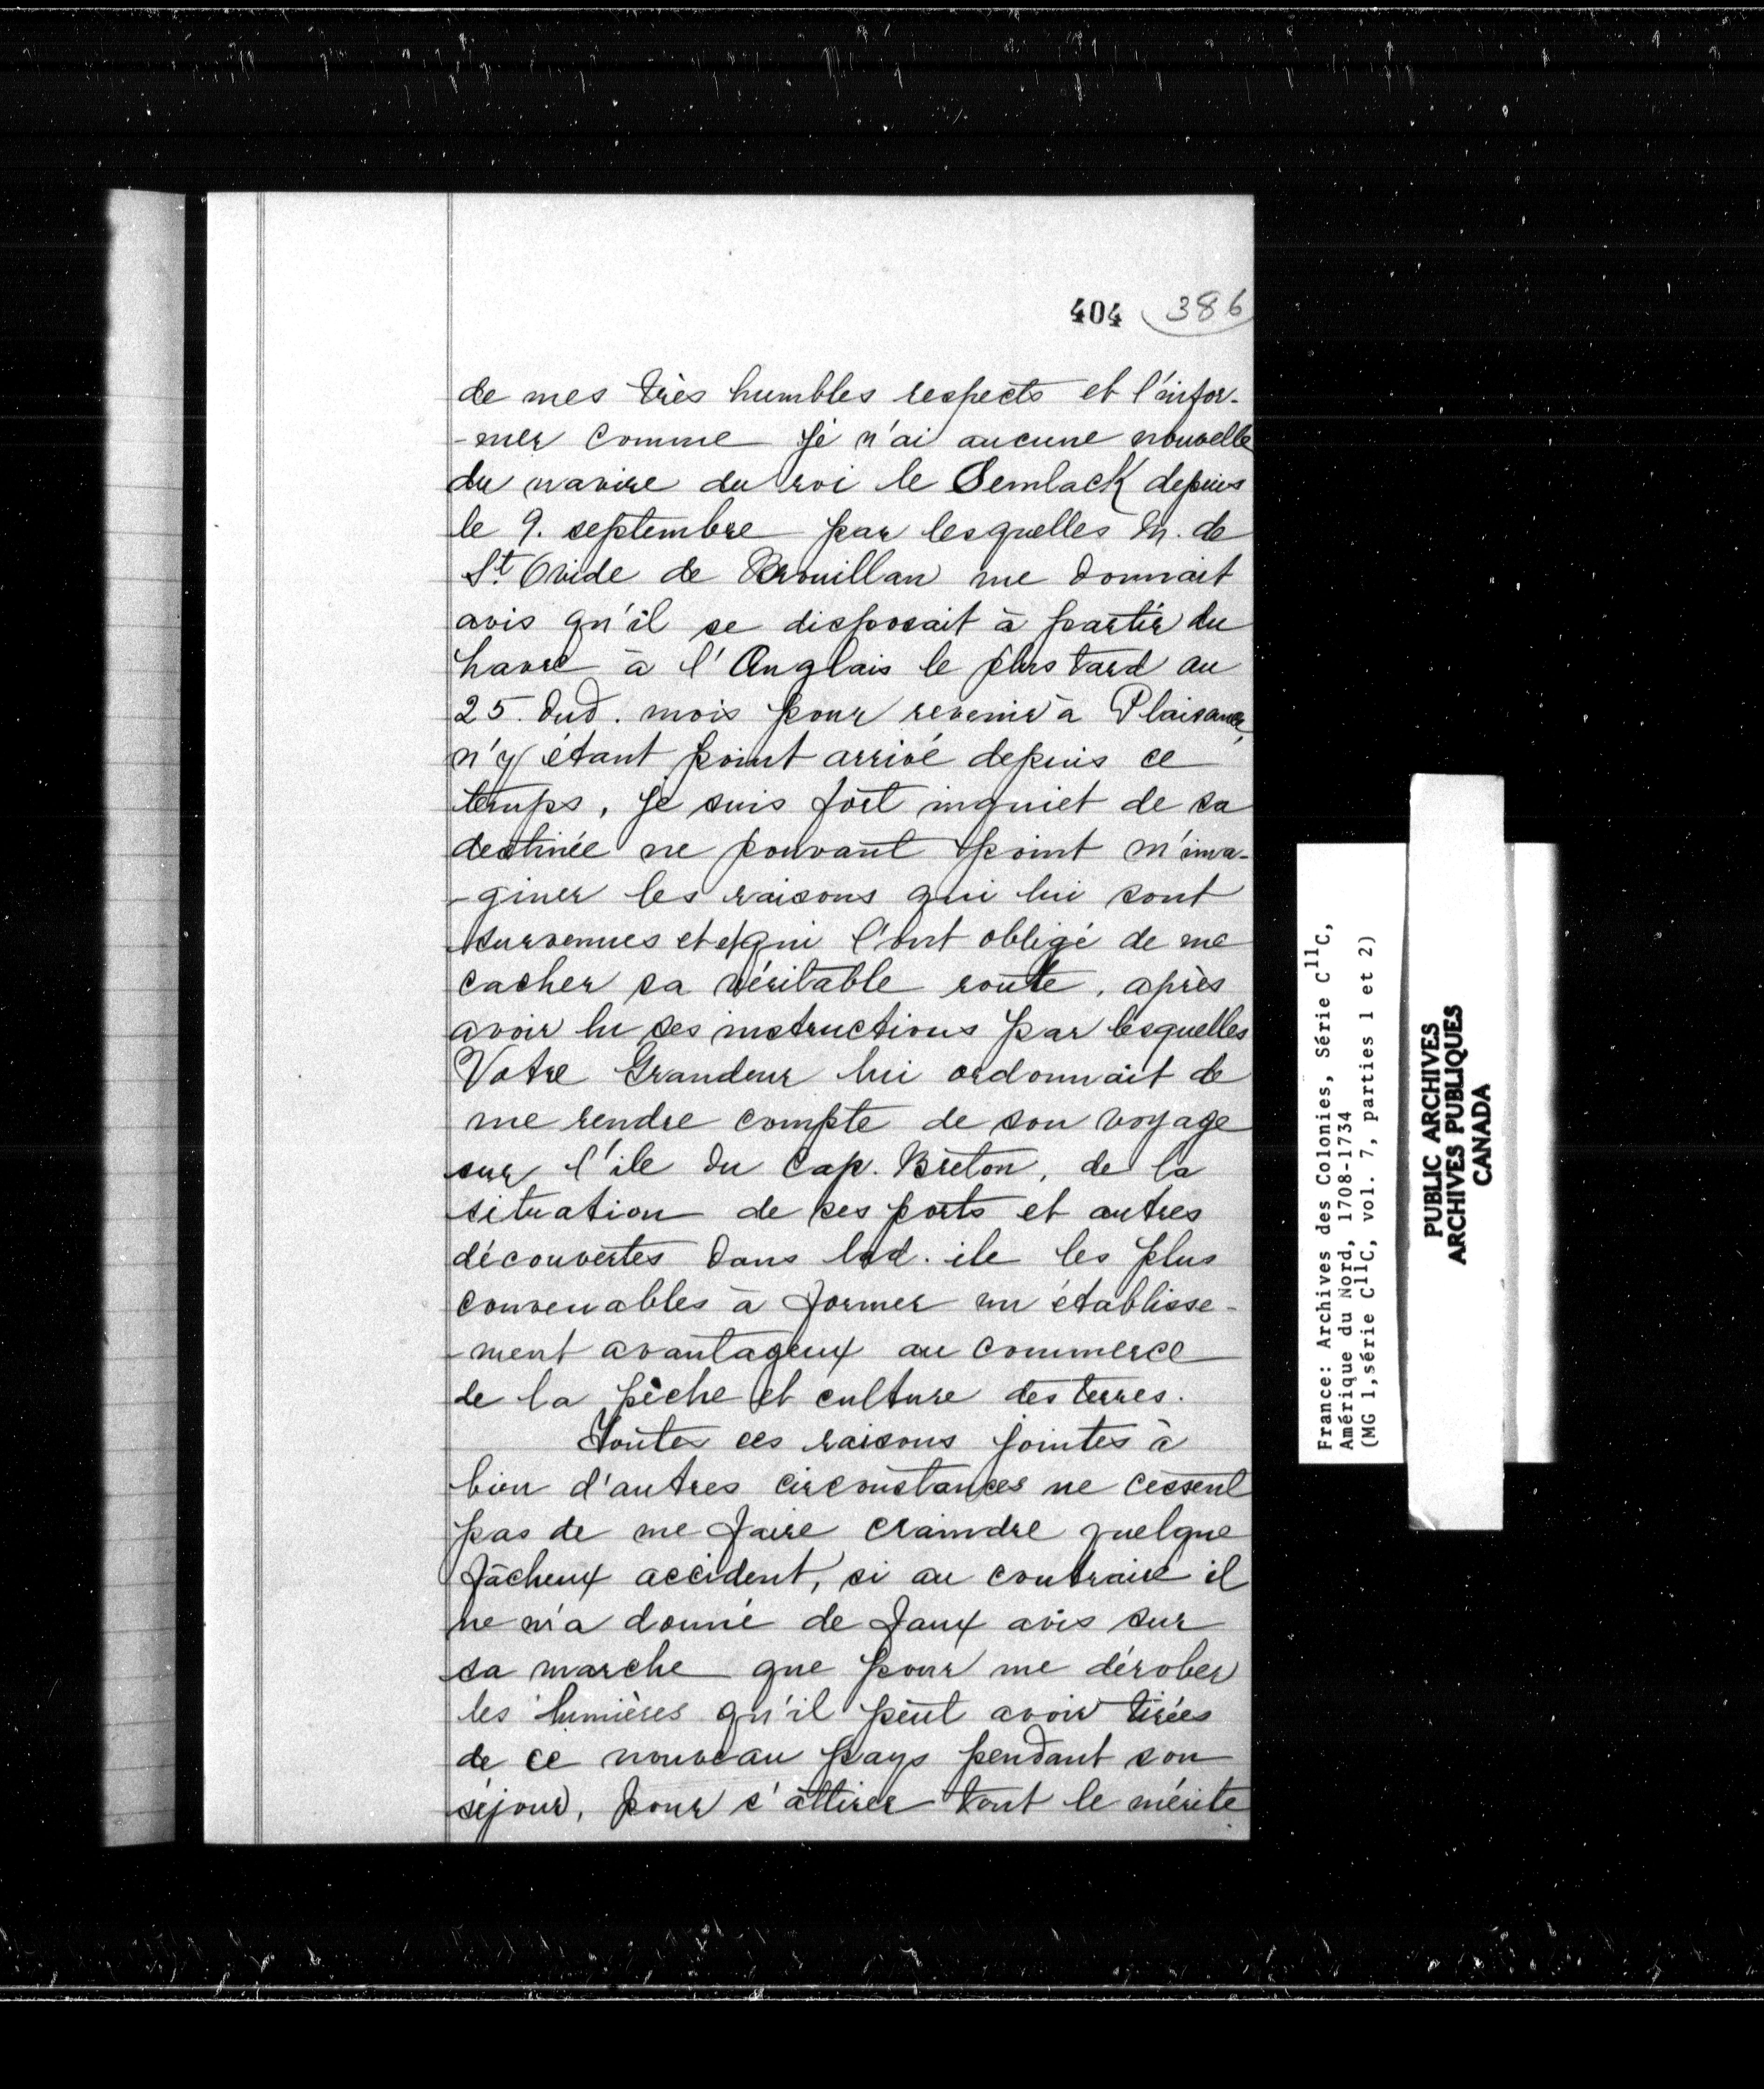 404 386
de mes très humbles respects et l'infor-
-mer comme je n'ai aucune nouvelle
du navire du roi le Semlack depuis
le 9. septembre par lesquelles M. de
St. Ovide de Brouillan me donnait
avis qu'il se disposait à partir du
havre à l'Anglais le plus tard au
25. dud. mois pour revenir à Plaisance,
n'y étant point arrivé depuis ce
temps, je suis fort inquiet de sa
destinée ne pouvant point m'ima-
-giner les raisons qui lui sont
survenues et qui l'ont obligé de me
cacher sa véritable route, après
avoir lu ses instructions par lesquelles
Votre Grandeur lui ordonnait de
me rendre compte de son voyage
sur l'ile du Cap. Breton, de la
situation de ses ports et autres
découvertes dans lad. ile les plus
convenables à former un établisse-
-ment avantageux au commerce
de la pêche et culture des terres.
Toutes ces raisons jointes à
bien d'autres circonstances ne cessent
pas de me faire craindre quelque
fâcheux accident, si au contraire il
ne m'a donné de faux avis sur
sa marche que pour me dérober
les lumières qu'il peut avoir tirées
de ce nouveau pays pendant son
séjour, pour s'attirer tout le mérite
France: Archives des Colonies, Série C11C,
Amérique du Nord, 1708-1734
(MG 1, série C11C, vol. 7, parties 1 et 2)
PUBLIC ARCHIVES
ARCHIVES PUBLIQUES
CANADA